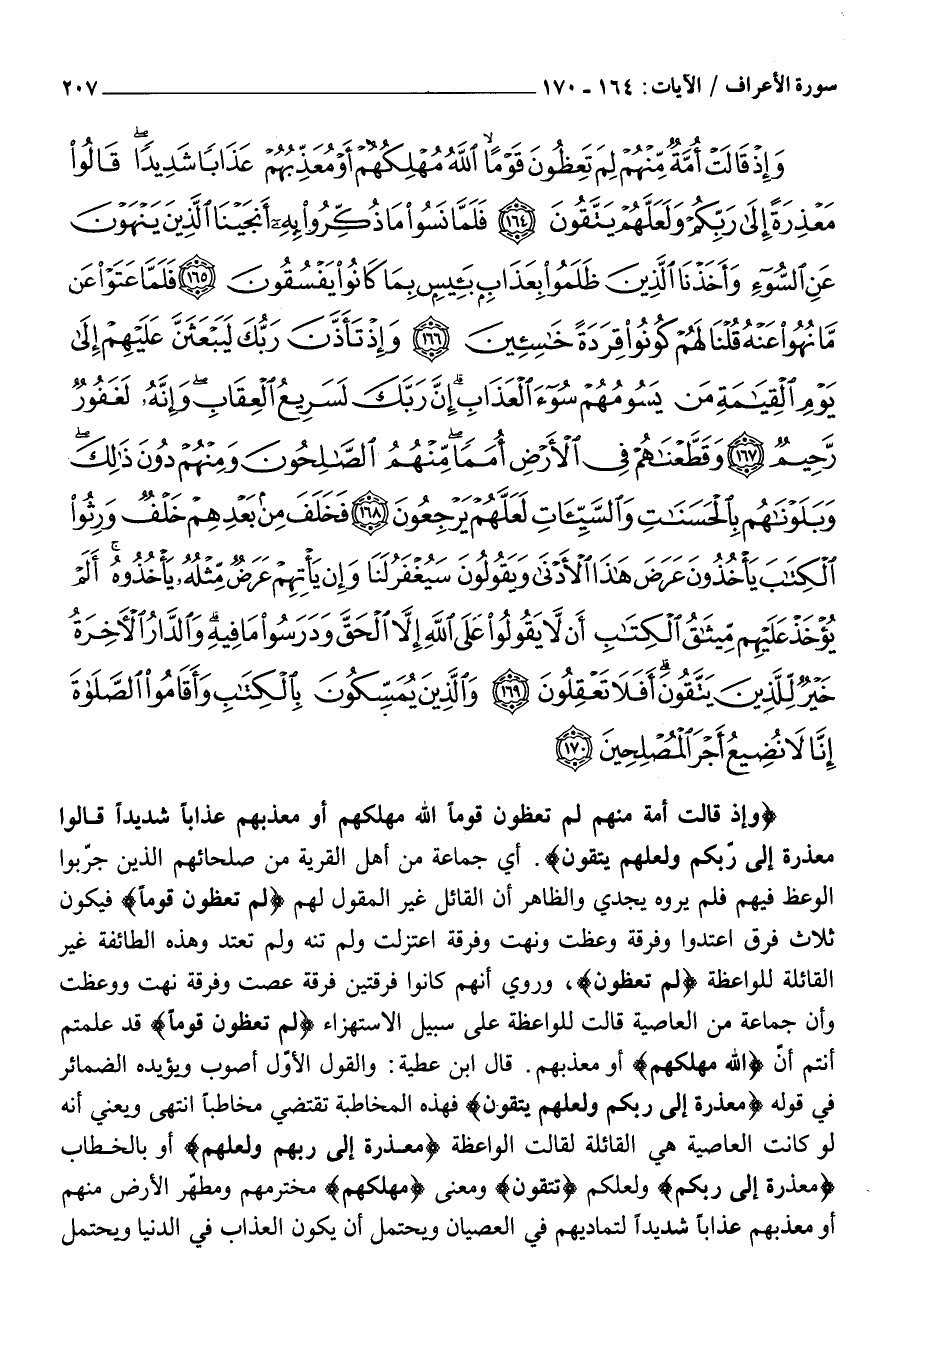 سورة الأعراف / الآيات: ١٦٤ ـ ١٧٠ ٢٠٧
وَإِذْ قَالَتْ أُمَّةٌ مِّنْهُمْ لِمَ تَعِظُونَ قَوْمًا ۙ ٱللَّهُ مُهْلِكُهُمْ أَوْ مُعَذِّبُهُمْ عَذَابًا شَدِيدًا ۖ قَالُوا۟
مَعْذِرَةً إِلَىٰ رَبِّكُمْ وَلَعَلَّهُمْ يَتَّقُونَ ﴿١٦٤﴾ فَلَمَّا نَسُوا۟ مَا ذُكِّرُوا۟ بِهِۦٓ أَنجَيْنَا ٱلَّذِينَ يَنْهَوْنَ
عَنِ ٱلسُّوٓءِ وَأَخَذْنَا ٱلَّذِينَ ظَلَمُوا۟ بِعَذَابٍۭ بَـِٔيسٍۭ بِمَا كَانُوا۟ يَفْسُقُونَ ﴿١٦٥﴾ فَلَمَّا عَتَوْا۟ عَن
مَّا نُهُوا۟ عَنْهُ قُلْنَا لَهُمْ كُونُوا۟ قِرَدَةً خَٰسِـِٔينَ ﴿١٦٦﴾ وَإِذْ تَأَذَّنَ رَبُّكَ لَيَبْعَثَنَّ عَلَيْهِمْ إِلَىٰ
يَوْمِ ٱلْقِيَٰمَةِ مَن يَسُومُهُمْ سُوٓءَ ٱلْعَذَابِ ۗ إِنَّ رَبَّكَ لَسَرِيعُ ٱلْعِقَابِ ۖ وَإِنَّهُۥ لَغَفُورٌ
رَّحِيمٌ ﴿١٦٧﴾ وَقَطَّعْنَٰهُمْ فِى ٱلْأَرْضِ أُمَمًا ۖ مِّنْهُمُ ٱلصَّٰلِحُونَ وَمِنْهُمْ دُونَ ذَٰلِكَ ۖ
وَبَلَوْنَٰهُم بِٱلْحَسَنَٰتِ وَٱلسَّيِّـَٔاتِ لَعَلَّهُمْ يَرْجِعُونَ ﴿١٦٨﴾ فَخَلَفَ مِنۢ بَعْدِهِمْ خَلْفٌ وَرِثُوا۟
ٱلْكِتَٰبَ يَأْخُذُونَ عَرَضَ هَٰذَا ٱلْأَدْنَىٰ وَيَقُولُونَ سَيُغْفَرُ لَنَا وَإِن يَأْتِهِمْ عَرَضٌ مِّثْلُهُۥ يَأْخُذُوهُ ۚ أَلَمْ
يُؤْخَذْ عَلَيْهِم مِّيثَٰقُ ٱلْكِتَٰبِ أَن لَّا يَقُولُوا۟ عَلَى ٱللَّهِ إِلَّا ٱلْحَقَّ وَدَرَسُوا۟ مَا فِيهِ ۗ وَٱلدَّارُ ٱلْـَٔاخِرَةُ
خَيْرٌ لِّلَّذِينَ يَتَّقُونَ ۗ أَفَلَا تَعْقِلُونَ ﴿١٦٩﴾ وَٱلَّذِينَ يُمَسِّكُونَ بِٱلْكِتَٰبِ وَأَقَامُوا۟ ٱلصَّلَوٰةَ
إِنَّا لَا نُضِيعُ أَجْرَ ٱلْمُصْلِحِينَ ﴿١٧٠﴾
﴿وإذ قالت أمة منهم لم تعظون قوماً الله مهلكهم أو معذبهم عذاباً شديداً قالوا
معذرة إلى ربّكم ولعلهم يتقون﴾. أي جماعة من أهل القرية من صلحائهم الذين جرّبوا
الوعظ فيهم فلم يروه يجدي والظاهر أن القائل غير المقول لهم ﴿لم تعظون قوماً﴾ فيكون
ثلاث فرق اعتدوا وفرقة وعظت ونهت وفرقة اعتزلت ولم تنه ولم تعتد وهذه الطائفة غير
القائلة للواعظة ﴿لم تعظون﴾، وروي أنهم كانوا فرقتين فرقة عصت وفرقة نهت ووعظت
وأن جماعة من العاصية قالت للواعظة على سبيل الاستهزاء ﴿لم تعظون قوماً﴾ قد علمتم
أنتم أنّ ﴿الله مهلكهم﴾ أو معذبهم. قال ابن عطية: والقول الأوّل أصوب ويؤيده الضمائر
في قوله ﴿معذرة إلى ربكم ولعلهم يتقون﴾ فهذه المخاطبة تقتضي مخاطباً انتهى ويعني أنه
لو كانت العاصية هي القائلة لقالت الواعظة ﴿معذرة إلى ربهم ولعلهم﴾ أو بالخطاب
﴿معذرة إلى ربكم﴾ ولعلكم ﴿تتقون﴾ ومعنى ﴿مهلكهم﴾ مخترمهم ومطهّر الأرض منهم
أو معذبهم عذاباً شديداً لتماديهم في العصيان ويحتمل أن يكون العذاب في الدنيا ويحتمل